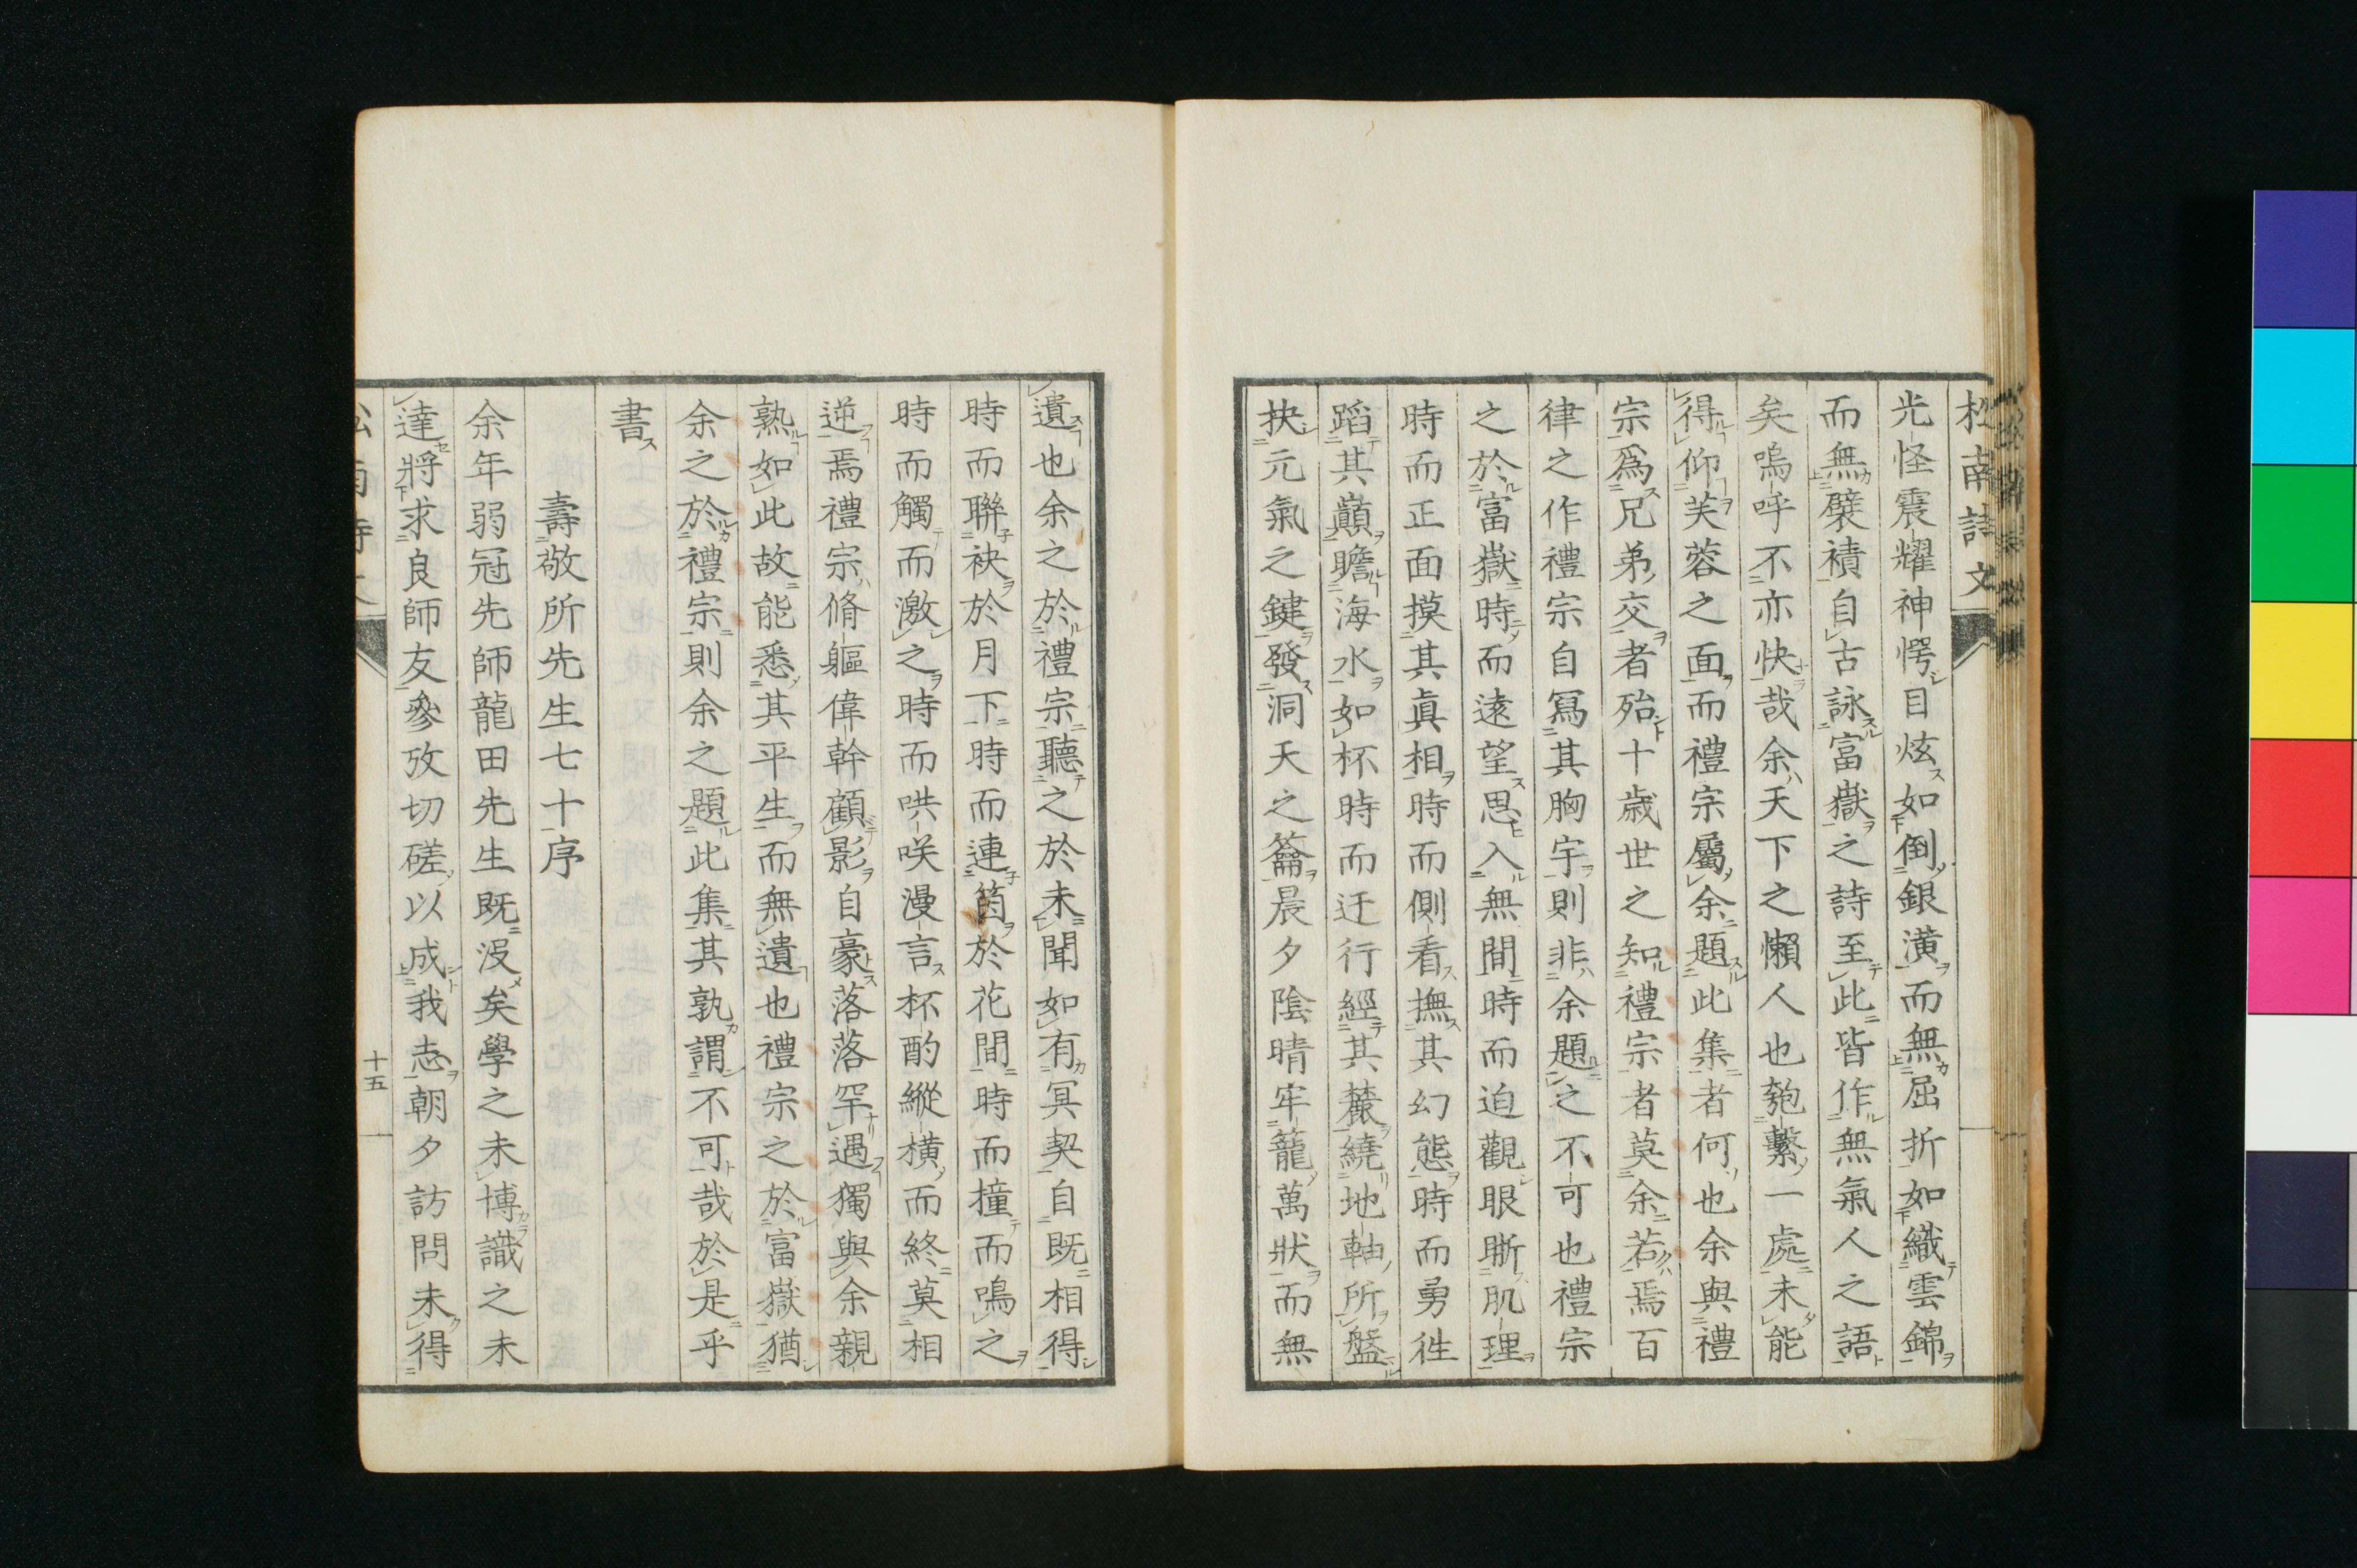 松南詩文
光怪震耀神愕目炫如倒銀潢而無屈折如織雲錦
而無襞積自古詠富嶽之詩至此皆作無氣人之語
矣嗚呼不亦快哉余天下之懶人也匏繫一處未能
得仰芙蓉之面而禮宗屬余題此集者何也余與禮
宗爲兄弟交者殆十歲世之知禮宗者莫余若焉百
律之作禮宗自寫其胸宇則非余題之不可也禮宗
之於富嶽時而遠望思入無間時而迫觀眼斷肌理
時而正面摸其眞相時而側看撫其幻態時而勇徃
蹈其巔瞻海水如杯時而迂行經其麓繞地軸所盤
抉元氣之鍵發洞天之籥晨夕陰晴牢籠萬狀而無
遺也余之於禮宗聽之於未聞如有冥契自既相得
時而聯袂於月下時而連筇於花間時而撞而鳴之
時而觸而激之時而哄咲漫言杯酌縱橫而終莫相
逆焉禮宗脩軀偉幹顧影自豪落落罕遇獨與余親
熟如此故能悉其平生而無遺也禮宗之於富嶽猶
余之於禮宗則余之題此集其孰謂不可哉於是乎
書
壽敬所先生七十序
余年弱冠先師龍田先生既沒矣學之未博識之未
達將求良師友參攷切磋以成我志朝夕訪問未得
十五